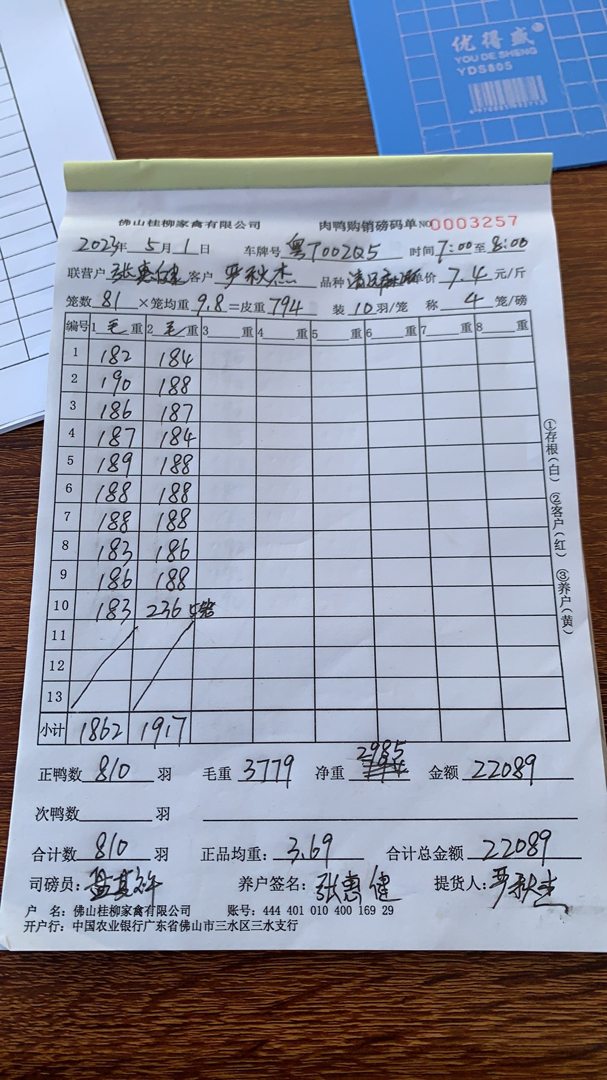 优得盛
YOU DE SHENG
YDS805
佛山桂柳家禽有限公司 肉鸭购销磅码单 NO 0003257
2023年 5月 1日 车牌号 粤T002Q5 时间 7:00至 8:00
联营户 张惠健 客户 严秋杰 品种 单价 7.4 元/斤
笼数 81 ×笼均重 9.8 =皮重 794 装 10 羽/笼 称 4 笼/磅
编号 1 毛 重 2 毛 重 3 重 4 重 5 重 6 重 7 重 8 重
1 182 184
2 190 188
3 186 187
4 187 184
5 189 188
6 188 188
7 188 188
8 183 186
9 186 188
10 183 236 5笼
11
12
13
小计 1862 1917
①存根(白) ②客户(红) ③养户(黄)
正鸭数 810 羽 毛重 3779 净重 2985 金额 22089
次鸭数 羽
合计数 810 羽 正品均重: 3.69 合计总金额 22089
司磅员: 养户签名: 张惠健 提货人: 严秋杰
户 名: 佛山桂柳家禽有限公司 账号: 444 401 010 400 169 29
开户行: 中国农业银行广东省佛山市三水区三水支行